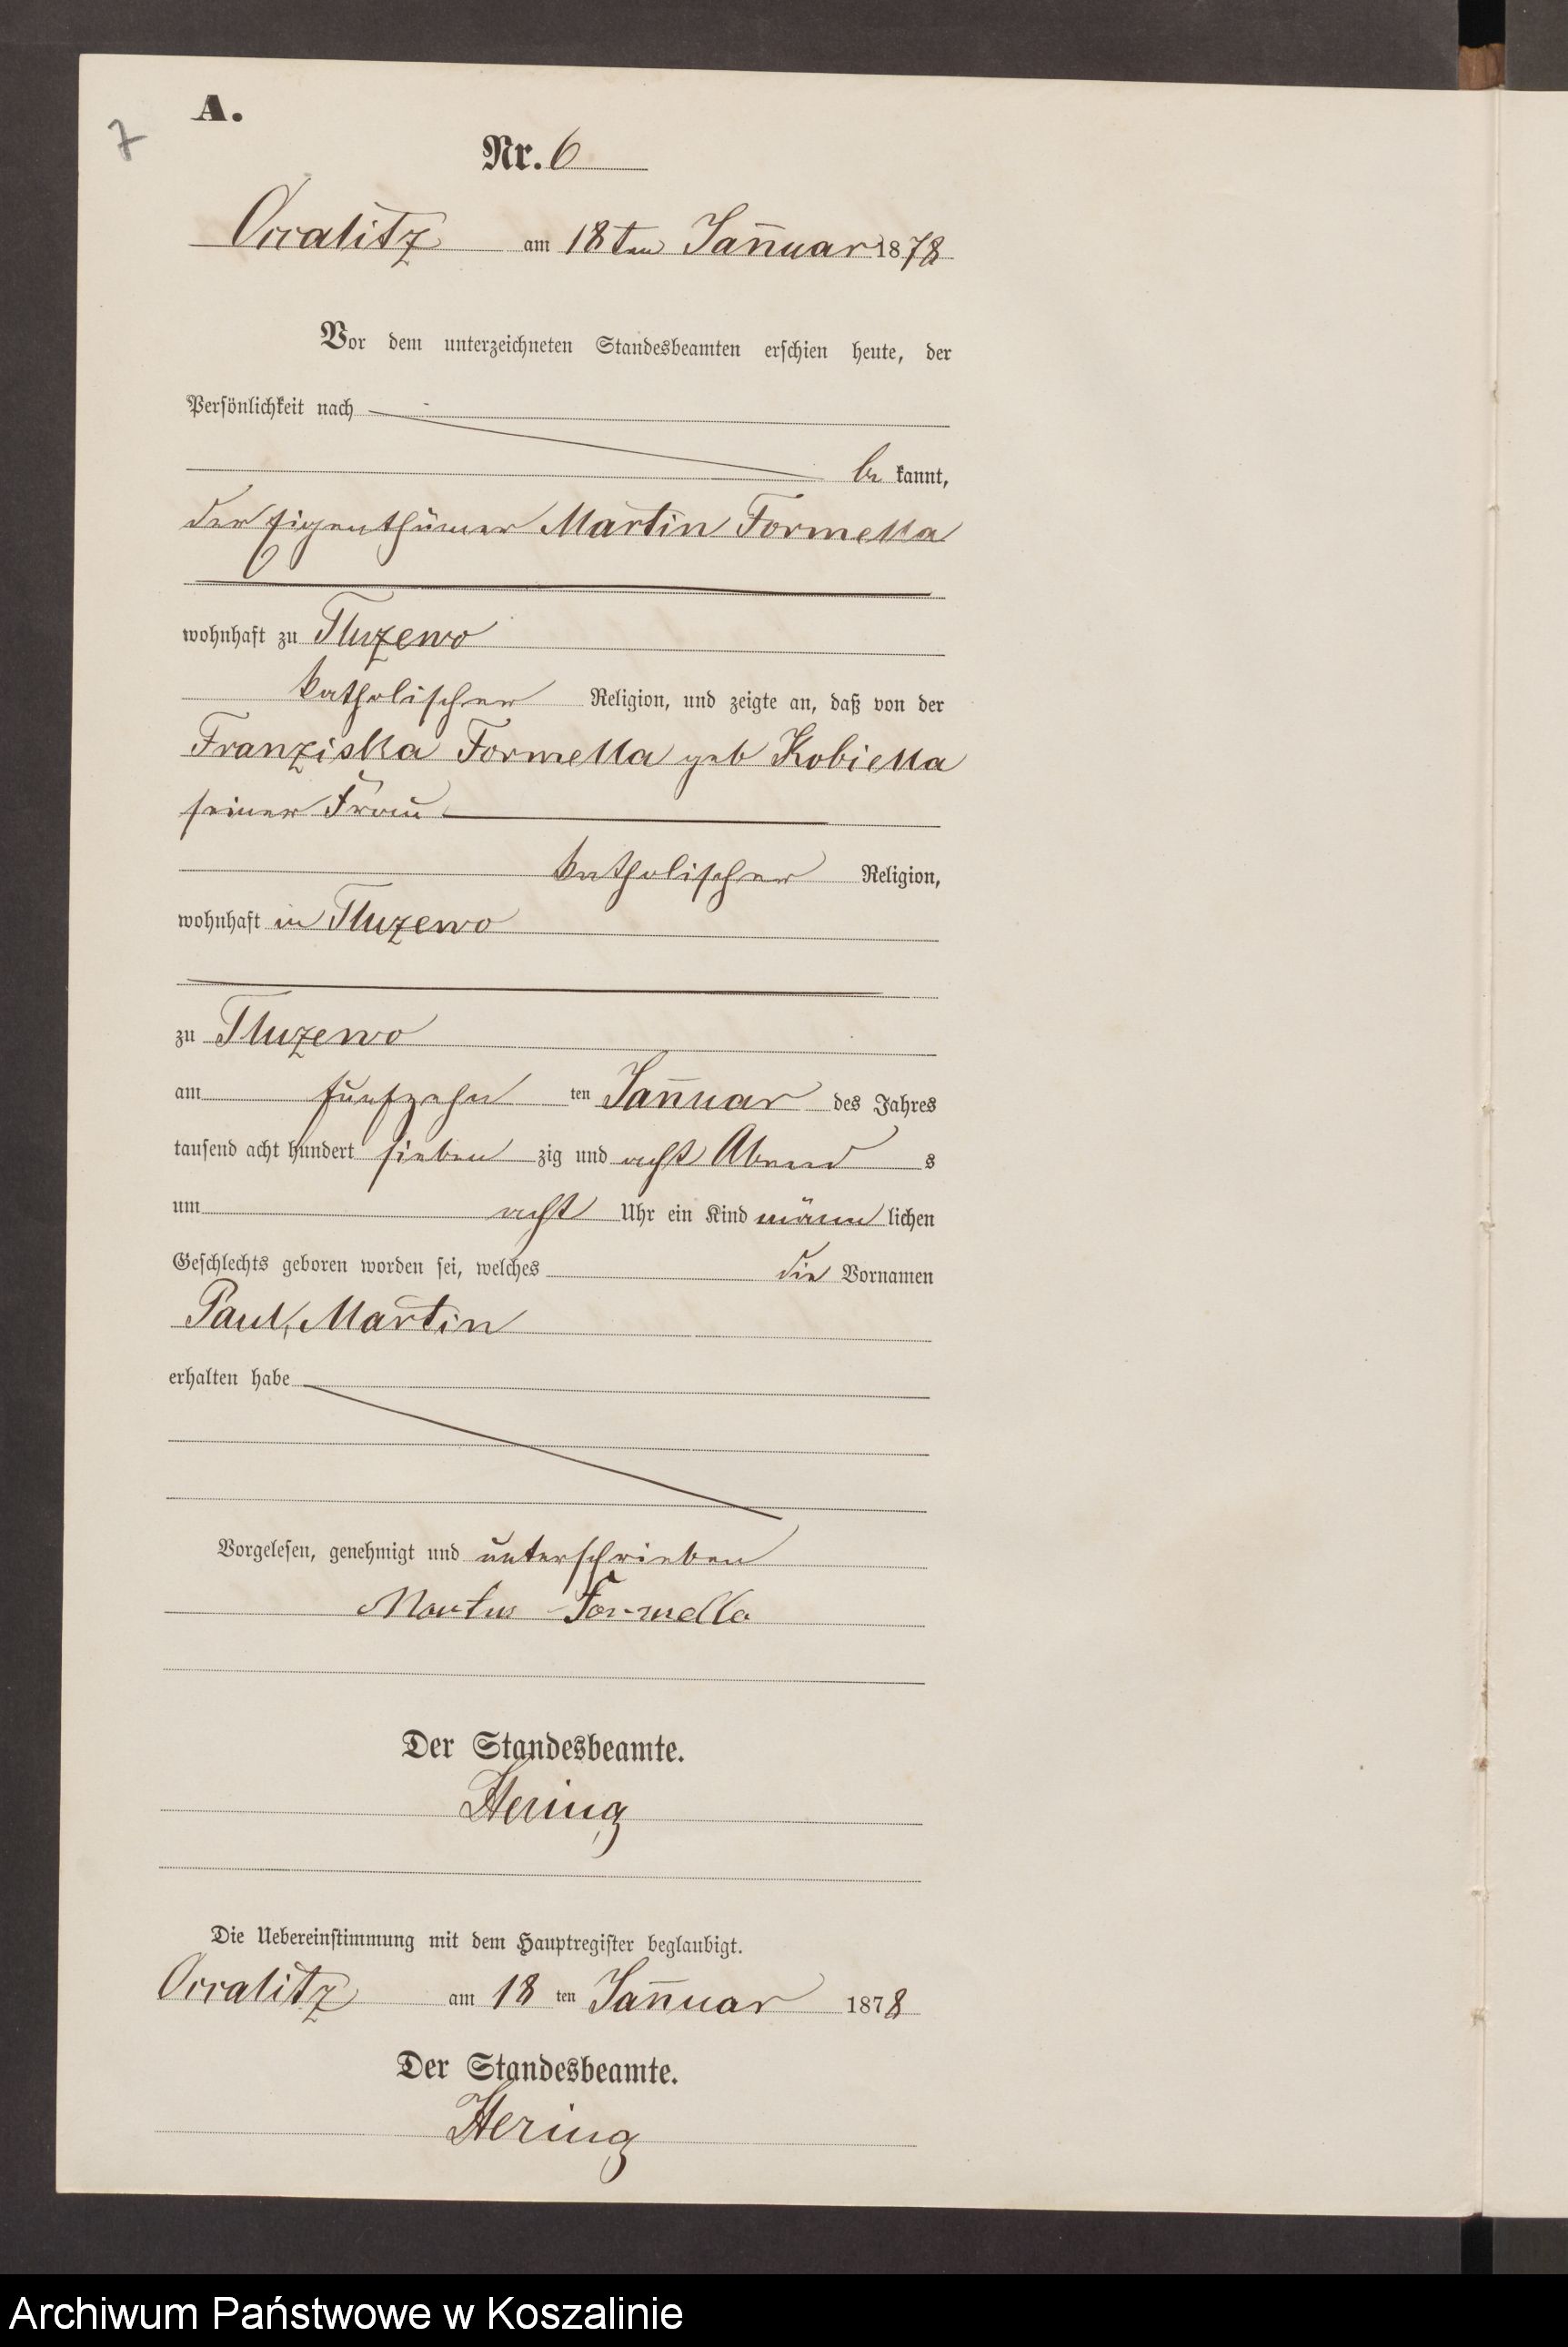 7
A.
Nr. 6
Occalitz am 18ten Jan̄uar 1878
Vor dem unterzeichneten Standesbeamten erschien heute, der
Persönlichkeit nach
be kannt,
der Eigenthümer Martin Formella
wohnhaft zu Tluzewo
katholischer Religion, und zeigte an, daß von der
Franziska Formella geb Kobiella
seiner Frau
katholischer Religion,
wohnhaft in Tluzewo
zu Tluzewo
am fünfzehn ten Jan̄uar des Jahres
tausend acht hundert sieben zig und acht Abend s
um acht Uhr ein Kind männ lichen
Geschlechts geboren worden sei, welches die Vornamen
Paul, Martin
erhalten habe
Vorgelesen, genehmigt und unterschrieben
Martin Formella
Der Standesbeamte.
Hering
Die Uebereinstimmung mit dem Hauptregister beglaubigt.
Occalitz am 18 ten Jan̄uar 1878
Der Standesbeamte.
Hering
Archiwum Państwowe w Koszalinie